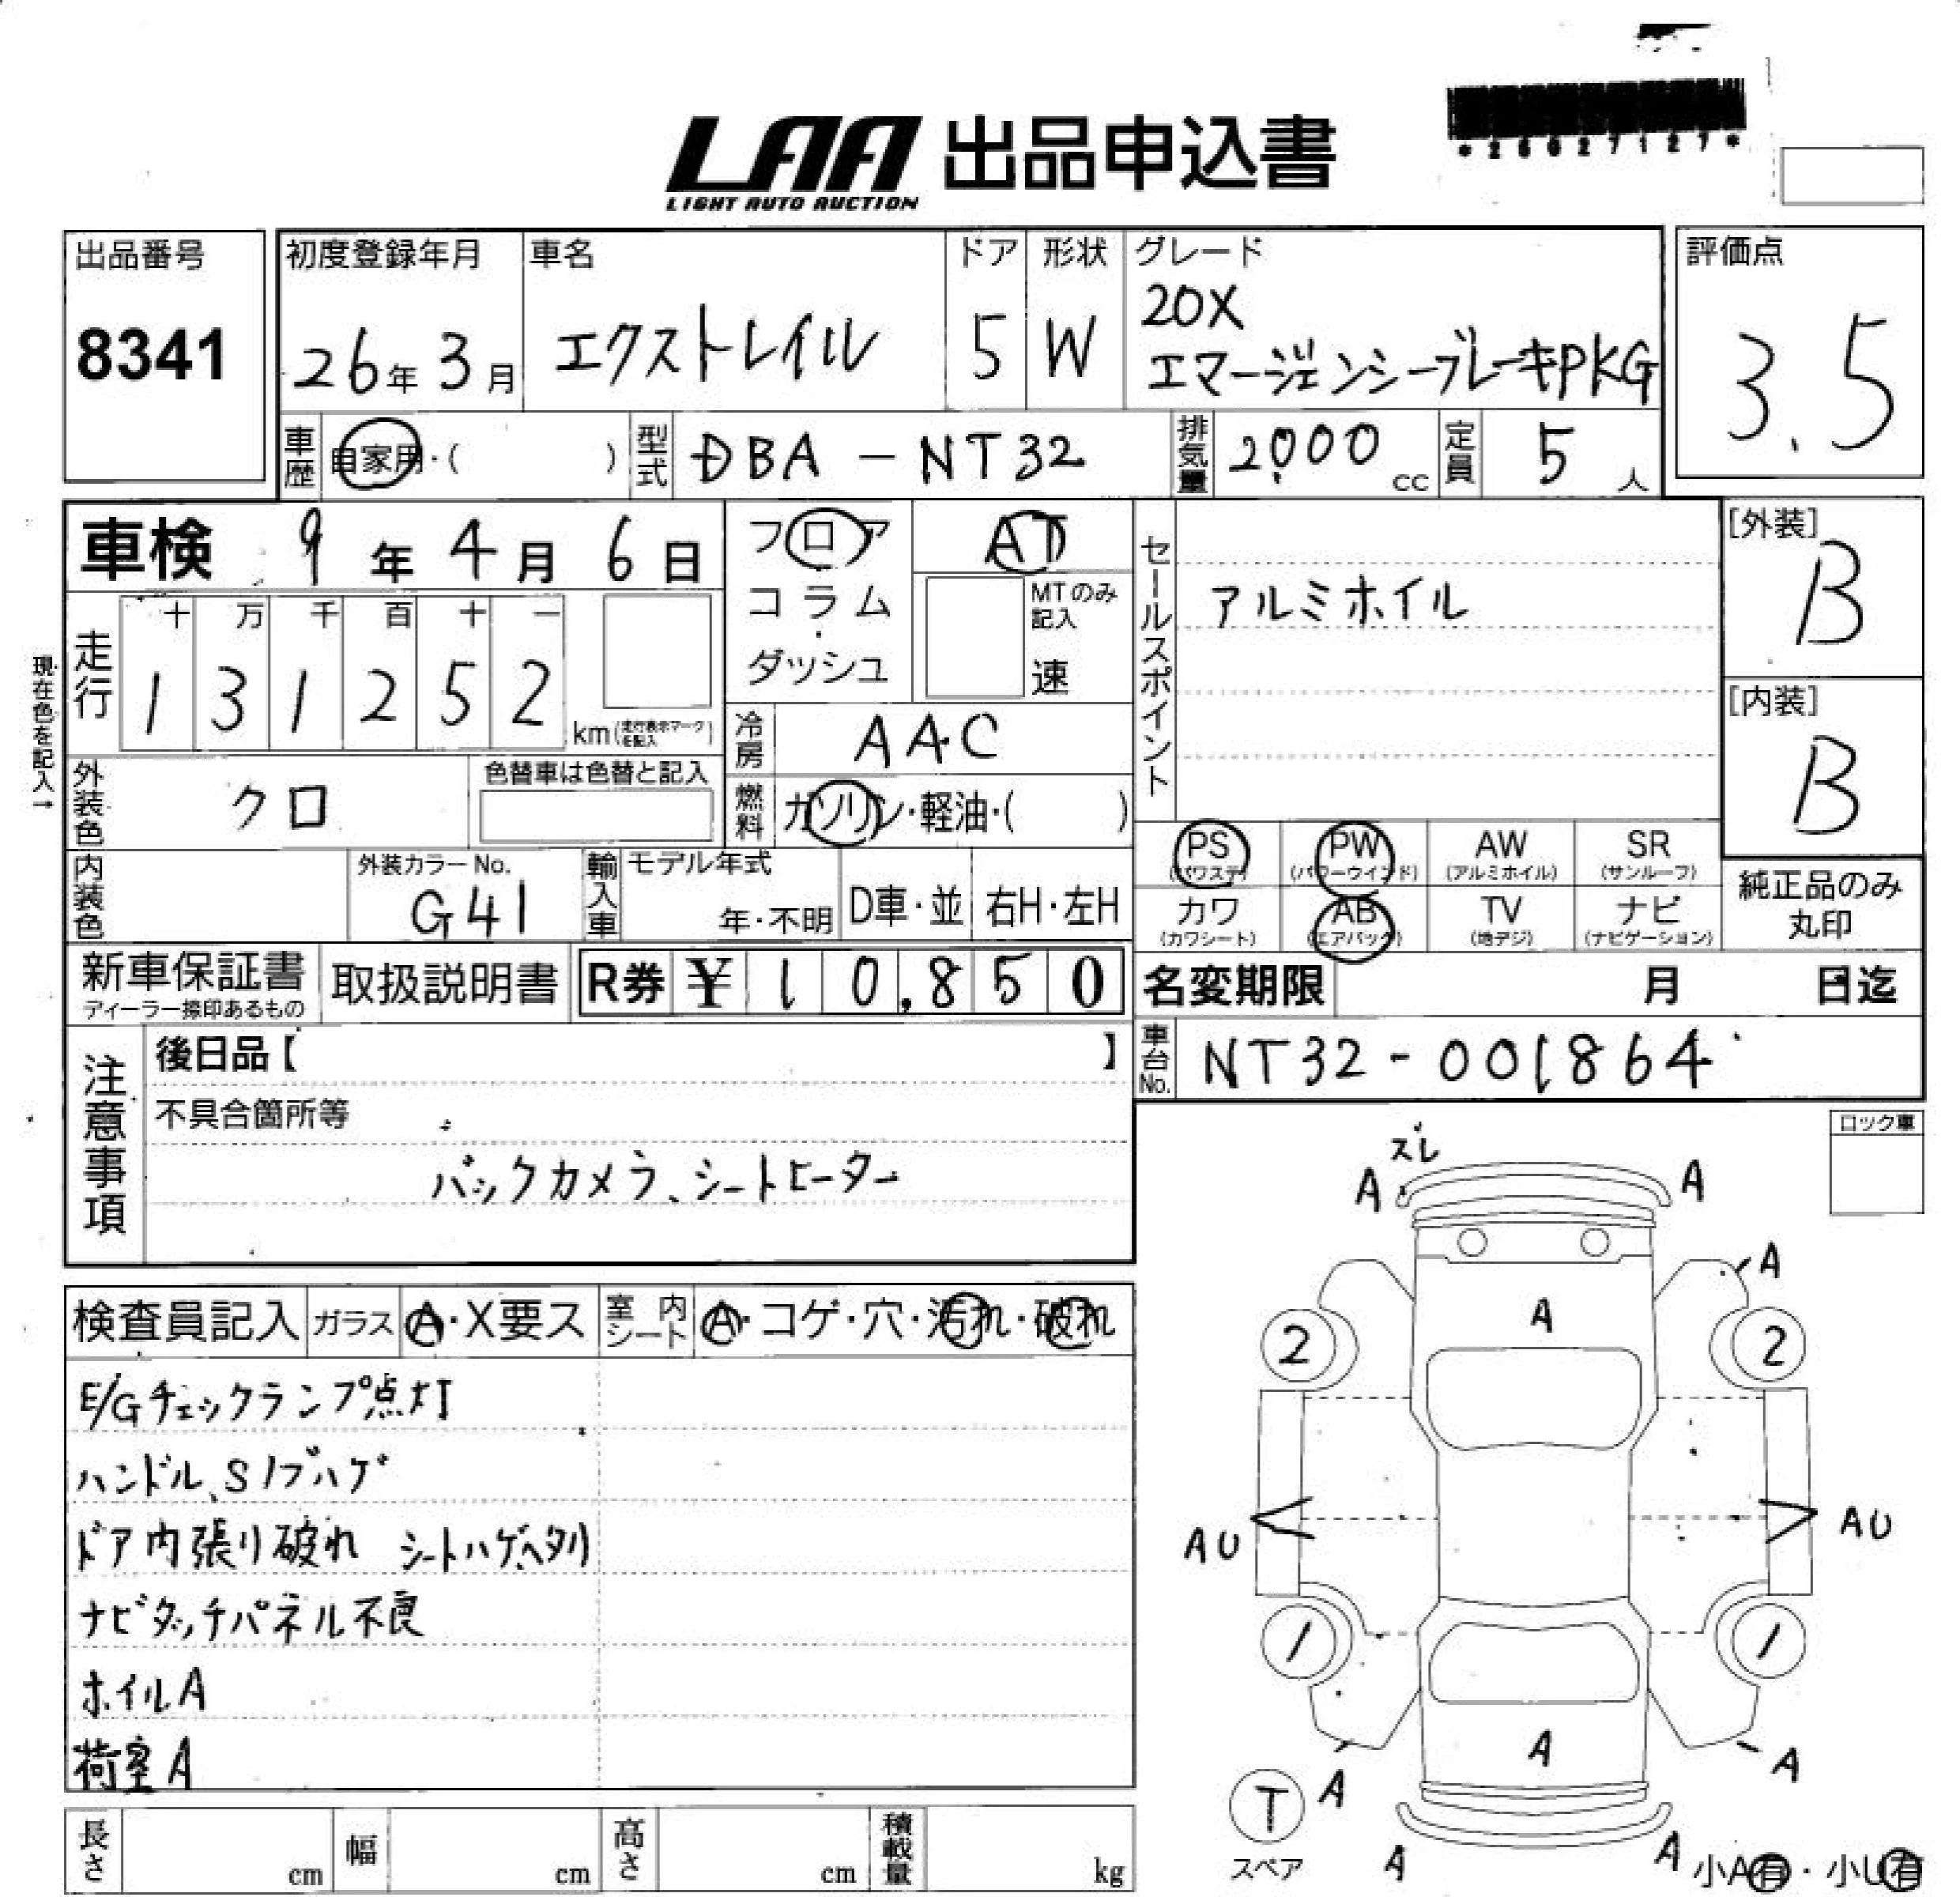 LAA 出品申込書
LIGHT AUTO AUCTION
*26027127*
出品番号
8341
初度登録年月
26年 3月
車名
エクストレイル
ドア
5
形状
W
グレード
20X
エマージェンシーブレーキPKG
評価点
3.5
車歴 自家用・( )
型式 DBA - NT32
排気量 2000 cc
定員 5 人
車検 9年 4月 6日
フロア
コラム
・
ダッシュ
AT
MTのみ
記入
速
セールスポイント
アルミホイル
[外装]
B
[内装]
B
現在色を記入→
走行
十 万 千 百 十 一
1 3 1 2 5 2
km (走行表示マークを記入)
冷房 AAC
燃料 ガソリン・軽油・( )
外装色 クロ
色替車は色替と記入
内装色
外装カラーNo.
G41
輸入車
モデル年式
年・不明
D車・並
右H・左H
PS (パワステ)
PW (パワーウインド)
AW (アルミホイル)
SR (サンルーフ)
カワ (カワシート)
AB (エアバック)
TV (地デジ)
ナビ (ナビゲーション)
純正品のみ
丸印
新車保証書
ディーラー捺印あるもの
取扱説明書
R券 ¥ 10,850
名変期限 月 日迄
車台No. NT32-001864
注意事項
後日品【 】
不具合箇所等
バックカメラ、シートヒーター
ロック車
検査員記入
ガラス A・X要ス
室内シート A・コゲ・穴・汚れ・破れ
E/Gチェックランプ点灯
ハンドル、Sノブハゲ
ドア内張り破れ シートハゲ、ヘタリ
ナビタッチパネル不良
ホイルA
荷室A
スレ
A A
A
A
2 2
AU AU
1 1
A
A A
T
スペア
A A
小A有・小U有
長さ cm
幅 cm
高さ cm
積載量 kg